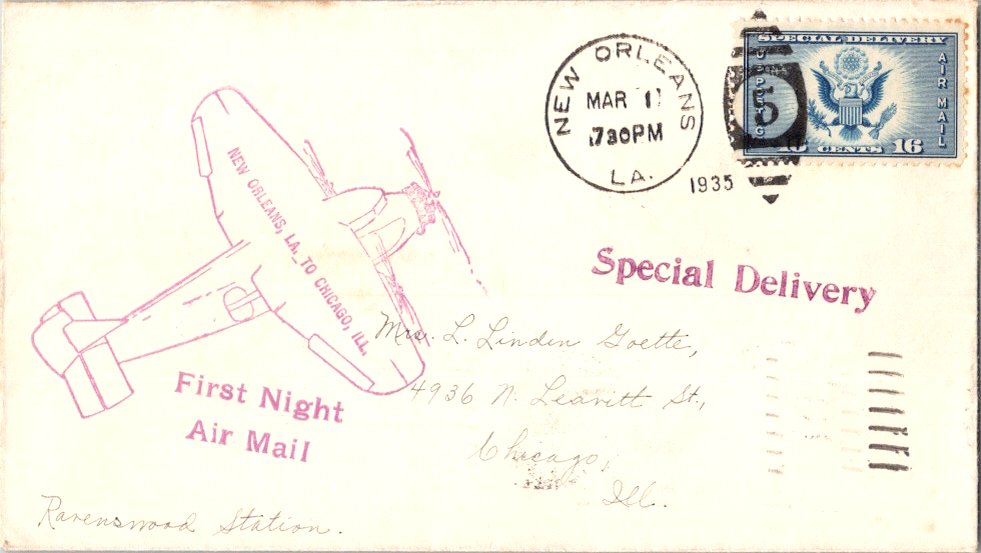 NEW ORLEANS
MAR 11
7 30 PM
LA.
1935
5
SPECIAL DELIVERY
U.S. POSTAGE
AIR MAIL
16 CENTS 16
NEW ORLEANS, LA. TO CHICAGO, ILL.
Special Delivery
Mrs. L. Linden Goette,
4936 N. Leavitt St.,
Chicago,
Ill.
First Night
Air Mail
Ravenswood Station.